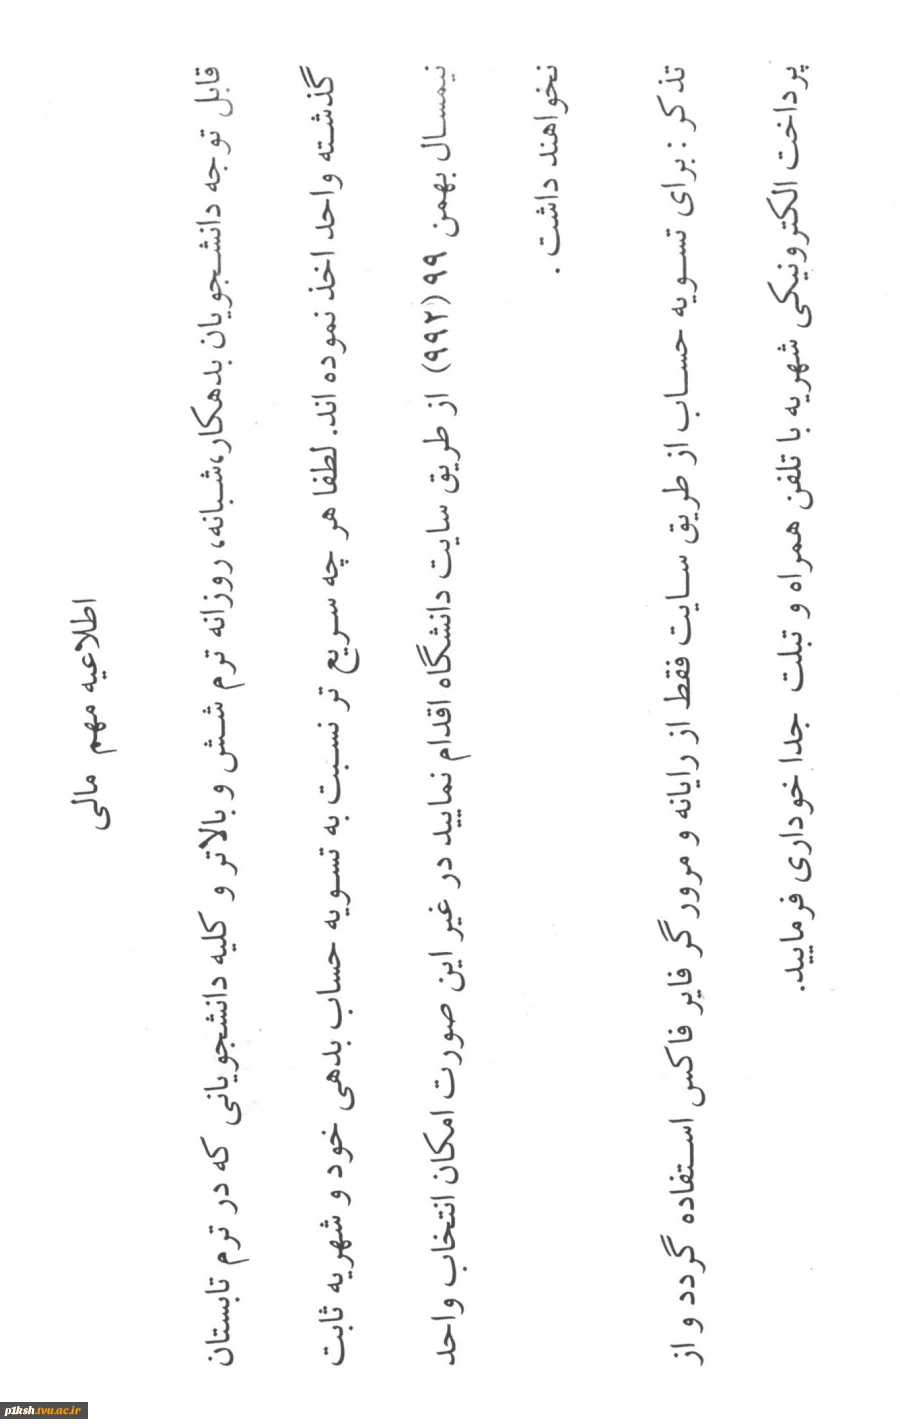 اطلاعیه مهم مالی
قابل توجه دانشجویان بدهکار،شبانه، روزانه ترم شش و بالاتر و کلیه دانشجویانی که در ترم تابستان
گذشته واحد اخذ نموده اند. لطفا هر چه سریع تر نسبت به تسویه حساب بدهی خود و شهریه ثابت
نیمسال بهمن ۹۹ (۹۹۲) از طریق سایت دانشگاه اقدام نمایید در غیر این صورت امکان انتخاب واحد
نخواهند داشت .
تذکر : برای تسویه حساب از طریق سایت فقط از رایانه و مرور گر فایر فاکس استفاده گردد و از
پرداخت الکترونیکی شهریه با تلفن همراه و تبلت جدا خوداری فرمایید.
p1ksh.tvu.ac.ir